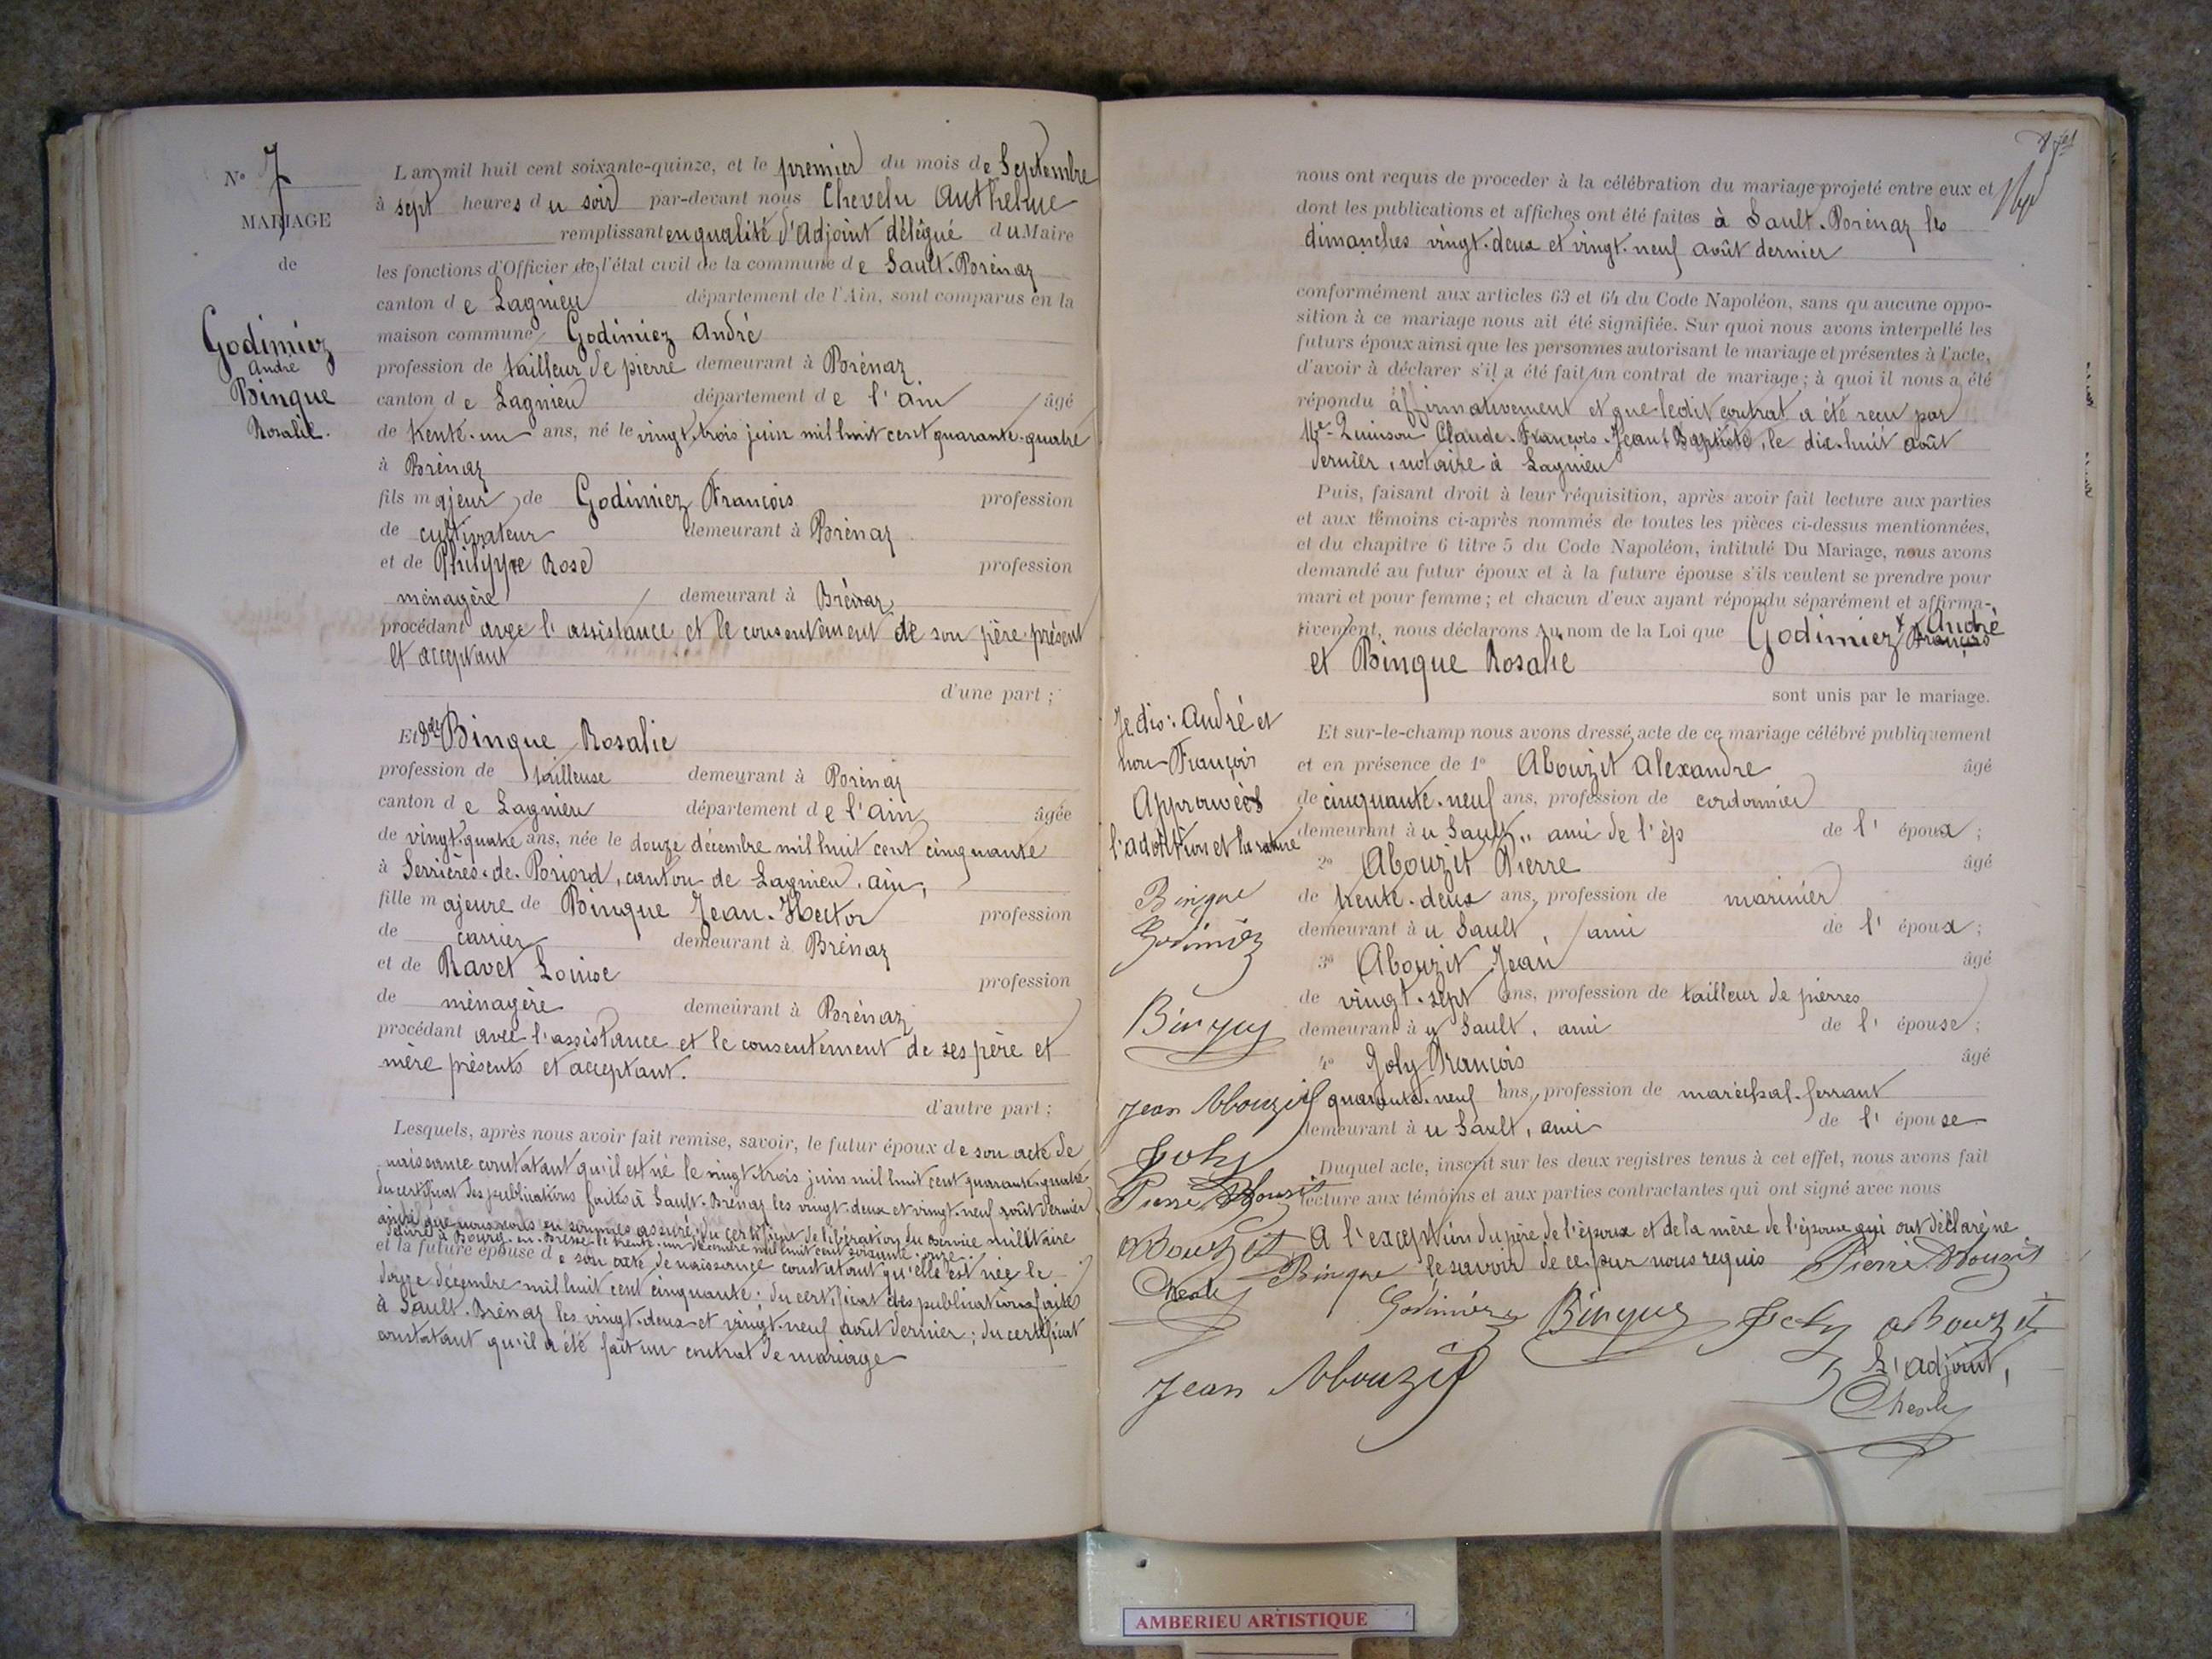 N° 7
MARIAGE
de
Godimiez
André
Binque
Rosalie.
L'an mil huit cent soixante-quinze, et le premier du mois de Septembre
à sept heures du soir par-devant nous Chevelu Anthelme
remplissant en qualité d'Adjoint délégué du Maire
les fonctions d'Officier de l'état civil de la commune de Sault-Brénaz
canton de Lagnieu département de l'Ain, sont comparus en la
maison commune Godimiez André
profession de tailleur de pierre demeurant à Brénaz
canton de Lagnieu département de l'ain âgé
de trente-un ans, né le vingt-trois juin mil huit cent quarante-quatre
à Brénaz
fils majeur de Godimiez François profession
de cultivateur demeurant à Brénaz
et de Philippe Rose profession
ménagère demeurant à Brénaz
procédant avec l'assistance et le consentement de son père présent
et acceptant
d'une part ;
Et Dlle Binque Rosalie
profession de tailleuse demeurant à Brénaz
canton de Lagnieu département de l'ain âgée
de vingt-quatre ans, née le douze décembre mil huit cent cinquante
à Serrières-de-Briord, canton de Lagnieu, ain,
fille majeure de Binque Jean-Hector profession
de carrier demeurant à Brénaz
et de Ravet Louise profession
de ménagère demeurant à Brénaz
procédant avec l'assistance et le consentement de ses père et
mère présents et acceptant.
d'autre part ;
Lesquels, après nous avoir fait remise, savoir, le futur époux de son acte de
naissance constatant qu'il est né le vingt-trois juin mil huit cent quarante-quatre
du certificat des publications faites à Sault-Brénaz les vingt-deux et vingt-neuf août dernier
ainsi que nous nous en sommes assuré, du certificat de libération du service militaire
délivré à Bourg-en-Bresse le trente-un décembre mil huit cent soixante-onze
et la future épouse de son acte de naissance constatant qu'elle est née le
douze décembre mil huit cent cinquante ; du certificat des publications faites
à Sault-Brénaz les vingt-deux et vingt-neuf août dernier ; du certificat
constatant qu'il a été fait un contrat de mariage
nous ont requis de proceder à la célébration du mariage projeté entre eux et
dont les publications et affiches ont été faites à Sault-Brénaz les
dimanches vingt-deux et vingt-neuf août dernier
conformément aux articles 63 et 64 du Code Napoléon, sans qu'aucune oppo-
sition à ce mariage nous ait été signifiée. Sur quoi nous avons interpellé les
futurs époux ainsi que les personnes autorisant le mariage et présentes à l'acte,
d'avoir à déclarer s'il a été fait un contrat de mariage ; à quoi il nous a été
répondu affirmativement et que ledit contrat a été reçu par
Me Quinson Claude-François-Jean-Baptiste, le dix-huit août
dernier, notaire à Lagnieu
Puis, faisant droit à leur réquisition, après avoir fait lecture aux parties
et aux témoins ci-après nommés de toutes les pièces ci-dessus mentionnées,
et du chapitre 6 titre 5 du Code Napoléon, intitulé Du Mariage, nous avons
demandé au futur époux et à la future épouse s'ils veulent se prendre pour
mari et pour femme ; et chacun d'eux ayant répondu séparément et affirma-
tivement, nous déclarons Au nom de la Loi que Godimiez André François
et Binque Rosalie
sont unis par le mariage.
Je dis : André et
non François
Approuvées
l'addition et la rature
Binque
Godimiez
Binque
Jean Abouzit
Joly
Pierre Abouzit
Abouzit
Et sur-le-champ nous avons dressé acte de ce mariage célébré publiquement
et en présence de 1° Abouzit Alexandre âgé
de cinquante-neuf ans, profession de cordonnier
demeurant à u Sault,, ami de l'ép de l'époux ;
2° Abouzit Pierre âgé
de trente-deux ans, profession de marinier
demeurant à u Sault, ami de l'époux ;
3° Abouzit Jean âgé
de vingt-sept ans, profession de tailleur de pierres
demeurant à u Sault, ami de l'épouse ;
4° Joly François âgé
quarante-neuf ans, profession de maréchal-ferrant
demeurant à u Sault, ami de l'épouse
Duquel acte, inscrit sur les deux registres tenus à cet effet, nous avons fait
lecture aux témoins et aux parties contractantes qui ont signé avec nous
A l'exception du père de l'époux et de la mère de l'épouse qui ont déclaré ne
le savoir de ce par nous requis Pierre Abouzit
Binque
Godimiez Binque Joly Abouzit
Jean Abouzit
L'adjoint,
AMBERIEU ARTISTIQUE